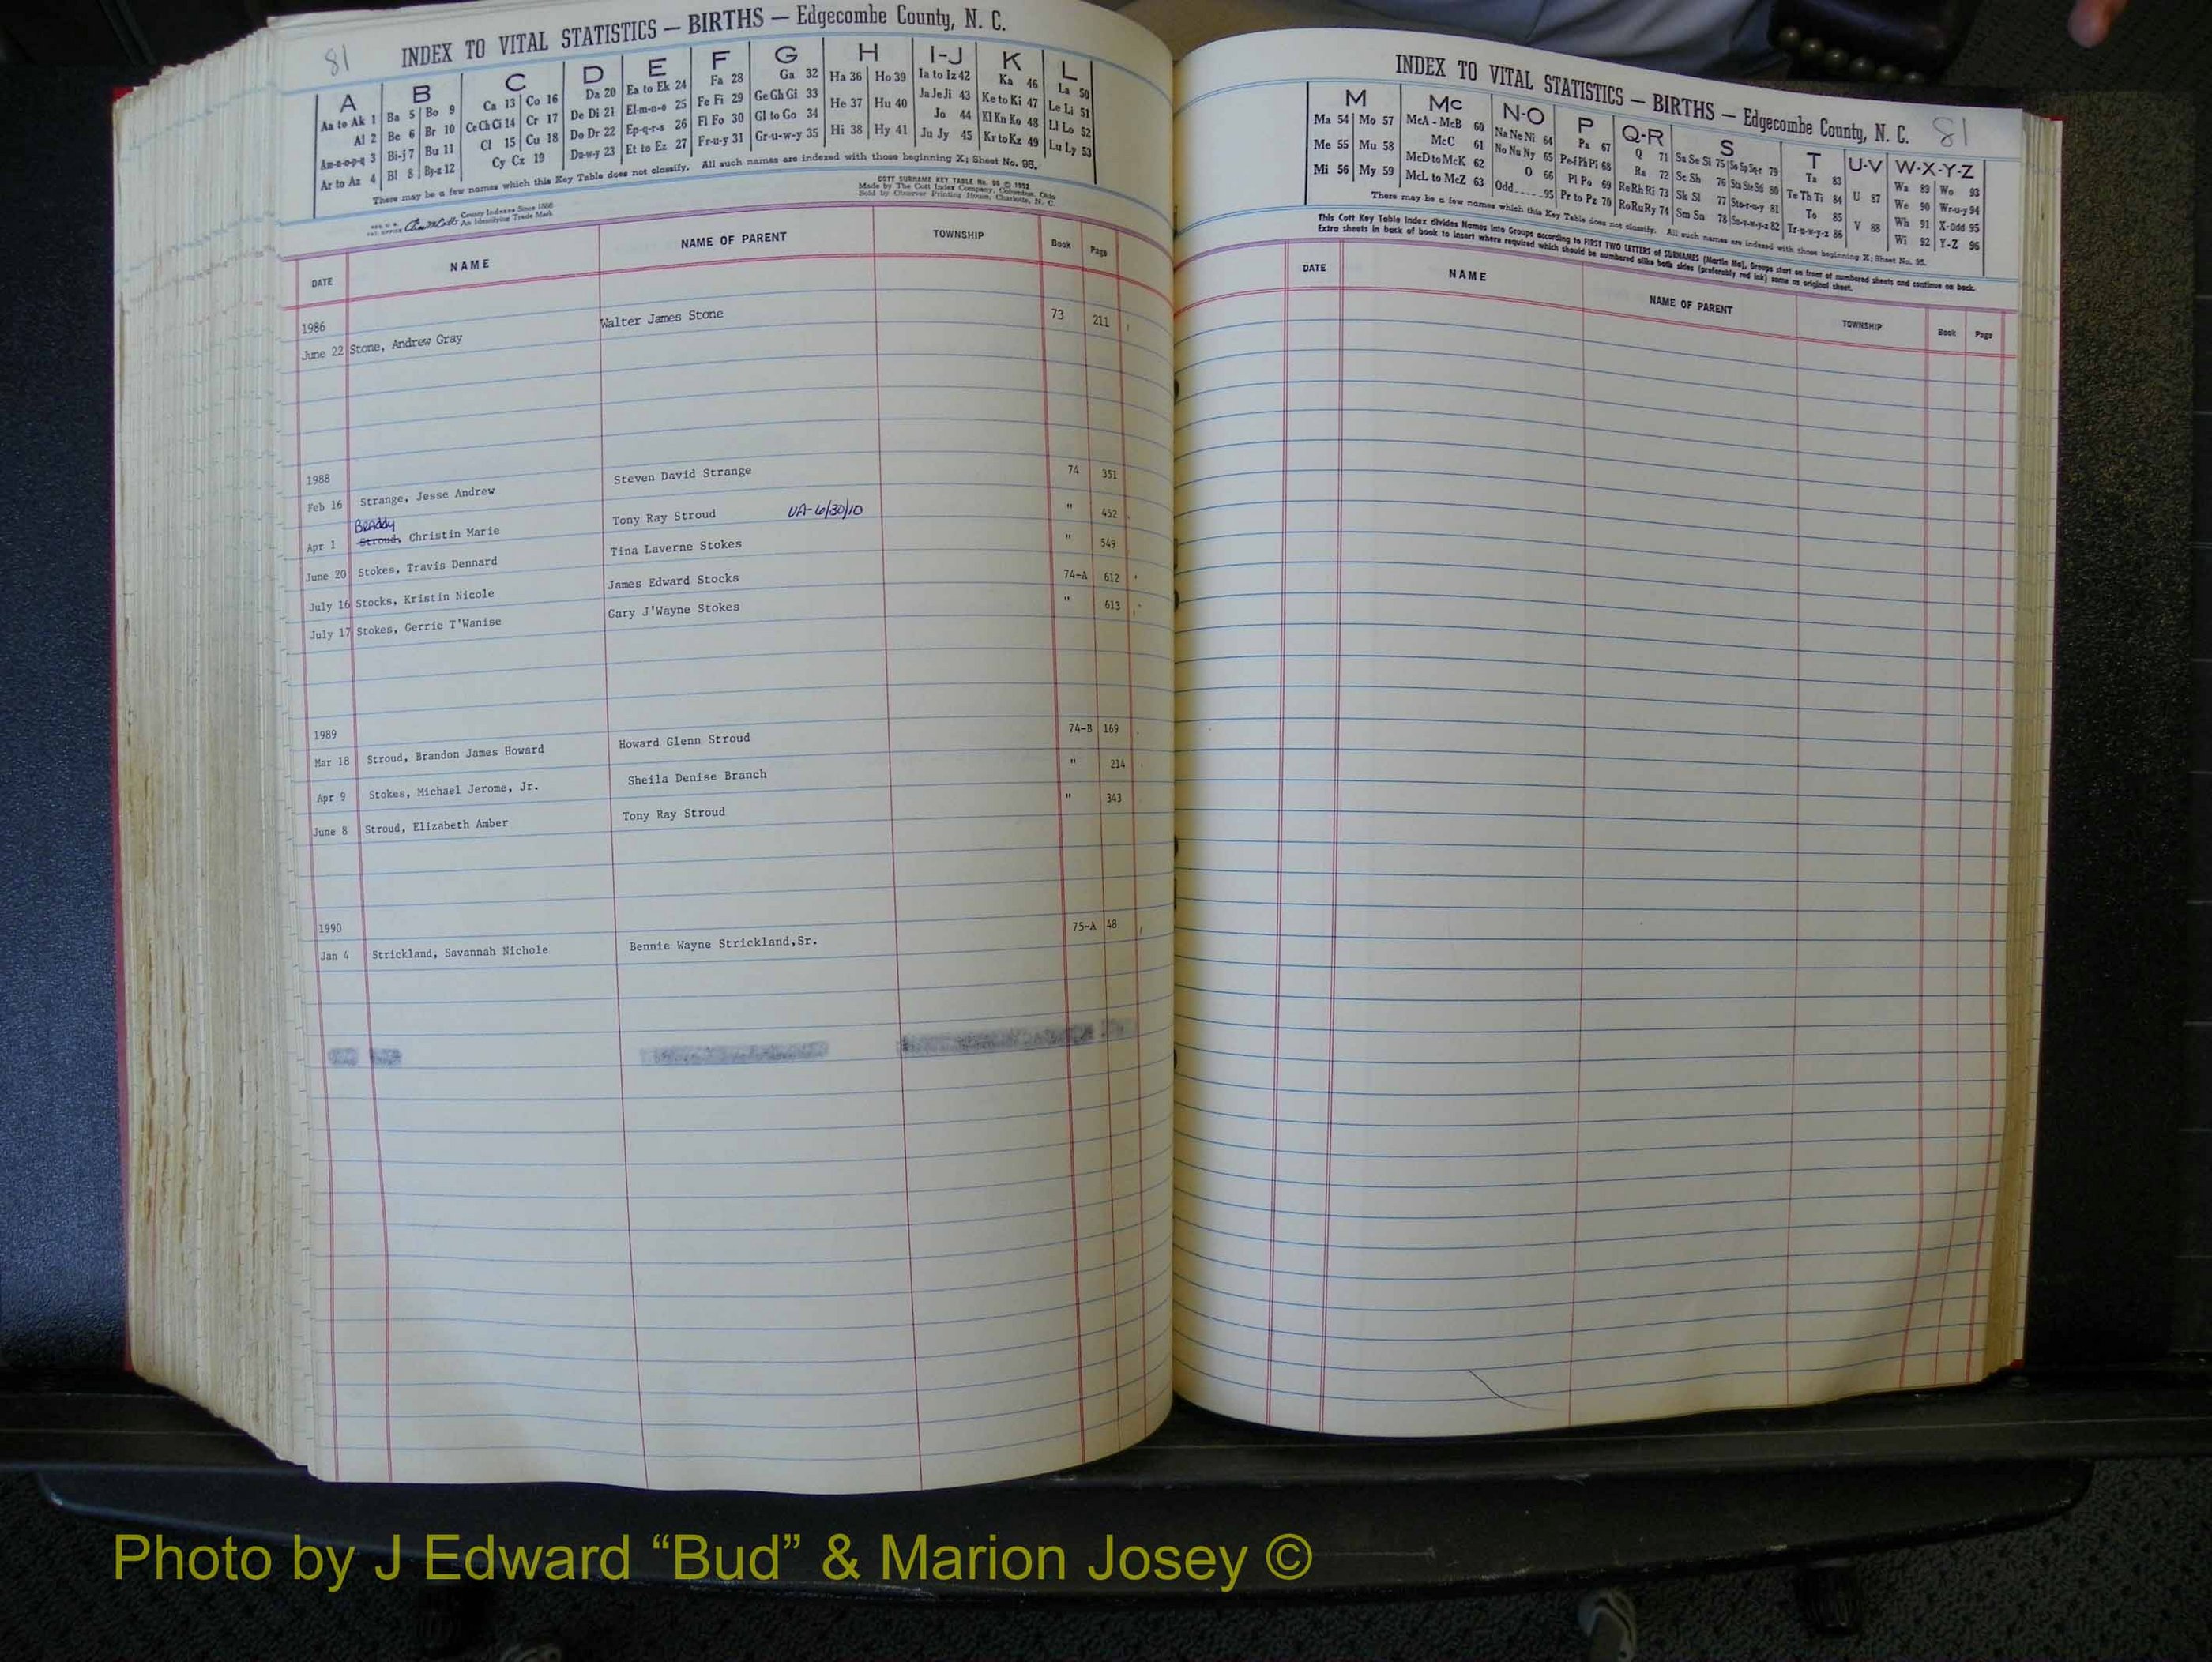 81 INDEX TO VITAL STATISTICS — BIRTHS — Edgecombe County, N. C.
A B C D E F G H I-J K L
Aa to Ak 1 Ba 5 Bo 9 Ca 13 Co 16 Da 20 Ea to Ek 24 Fa 28 Ga 32 Ha 36 Ho 39 Ia to Iz 42 Ka 46 La 50
Al 2 Be 6 Br 10 Ce Ch Ci 14 Cr 17 De Di 21 El-m-n-o 25 Fe Fi 29 Ge Gh Gi 33 He 37 Hu 40 Ja Je Ji 43 Ke to Ki 47 Le Li 51
Am-n-o-p-q 3 Bi-j 7 Bu 11 Cl 15 Cu 18 Do Dr 22 Ep-q-r-s 26 Fl Fo 30 Gl to Go 34 Hi 38 Hy 41 Jo 44 Kl Kn Ko 48 Ll Lo 52
Ar to Az 4 Bl 8 By-z 12 Cy Cz 19 Du-w-y 23 Et to Ez 27 Fr-u-y 31 Gr-u-w-y 35 Ju Jy 45 Kr to Kz 49 Lu Ly 53
There may be a few names which this Key Table does not classify. All such names are indexed with those beginning X; Sheet No. 95.
COTT SURNAME KEY TABLE No. 96 © 1952
Made by The Cott Index Company, Columbus, Ohio
Sold by Observer Printing House, Charlotte, N. C.
County Indexes Since 1888
An Identifying Trade Mark
DATE NAME NAME OF PARENT TOWNSHIP Book Page
1986
June 22 Stone, Andrew Gray Walter James Stone 73 211
1988
Feb 16 Strange, Jesse Andrew Steven David Strange 74 351
Braddy
Apr 1 Stroud, Christin Marie Tony Ray Stroud UA-6/30/10 " 452
June 20 Stokes, Travis Dennard Tina Laverne Stokes " 549
July 16 Stocks, Kristin Nicole James Edward Stocks 74-A 612
July 17 Stokes, Gerrie T'Wanise Gary J'Wayne Stokes " 613
1989
Mar 18 Stroud, Brandon James Howard Howard Glenn Stroud 74-B 169
Apr 9 Stokes, Michael Jerome, Jr. Sheila Denise Branch " 214
June 8 Stroud, Elizabeth Amber Tony Ray Stroud " 343
1990
Jan 4 Strickland, Savannah Nichole Bennie Wayne Strickland,Sr. 75-A 48
INDEX TO VITAL STATISTICS — BIRTHS — Edgecombe County, N. C. 81
M Mc N-O P Q-R S T U-V W-X-Y-Z
Ma 54 Mo 57 McA - McB 60 Na Ne Ni 64 Pa 67 Q 71 Sa Se Si 75 So Sp Sq-r 79 Ta 83 U 87 Wa 89 Wo 93
Me 55 Mu 58 McC 61 No Nu Ny 65 Pe-f Ph Pi 68 Ra 72 Sc Sh 76 Sta Ste Sti 80 Te Th Ti 84 V 88 We 90 Wr-u-y 94
Mi 56 My 59 McD to McK 62 O 66 Pl Po 69 Re Rh Ri 73 Sk Sl 77 Sto-r-u-y 81 To 85 Wh 91 X-Odd 95
McL to McZ 63 Odd 95 Pr to Pz 70 Ro Ru Ry 74 Sm Sn 78 Su-v-w-y-z 82 Tr-u-w-y-z 86 Wi 92 Y-Z 96
There may be a few names which this Key Table does not classify. All such names are indexed with those beginning X; Sheet No. 95.
This Cott Key Table Index divides Names into Groups according to FIRST TWO LETTERS of SURNAMES (Martin Ma), Groups start on front of numbered sheets and continue on back.
Extra sheets in back of book to insert where required which should be numbered alike both sides (preferably red ink) same as original sheet.
DATE NAME NAME OF PARENT TOWNSHIP Book Page
Photo by J Edward “Bud” & Marion Josey ©